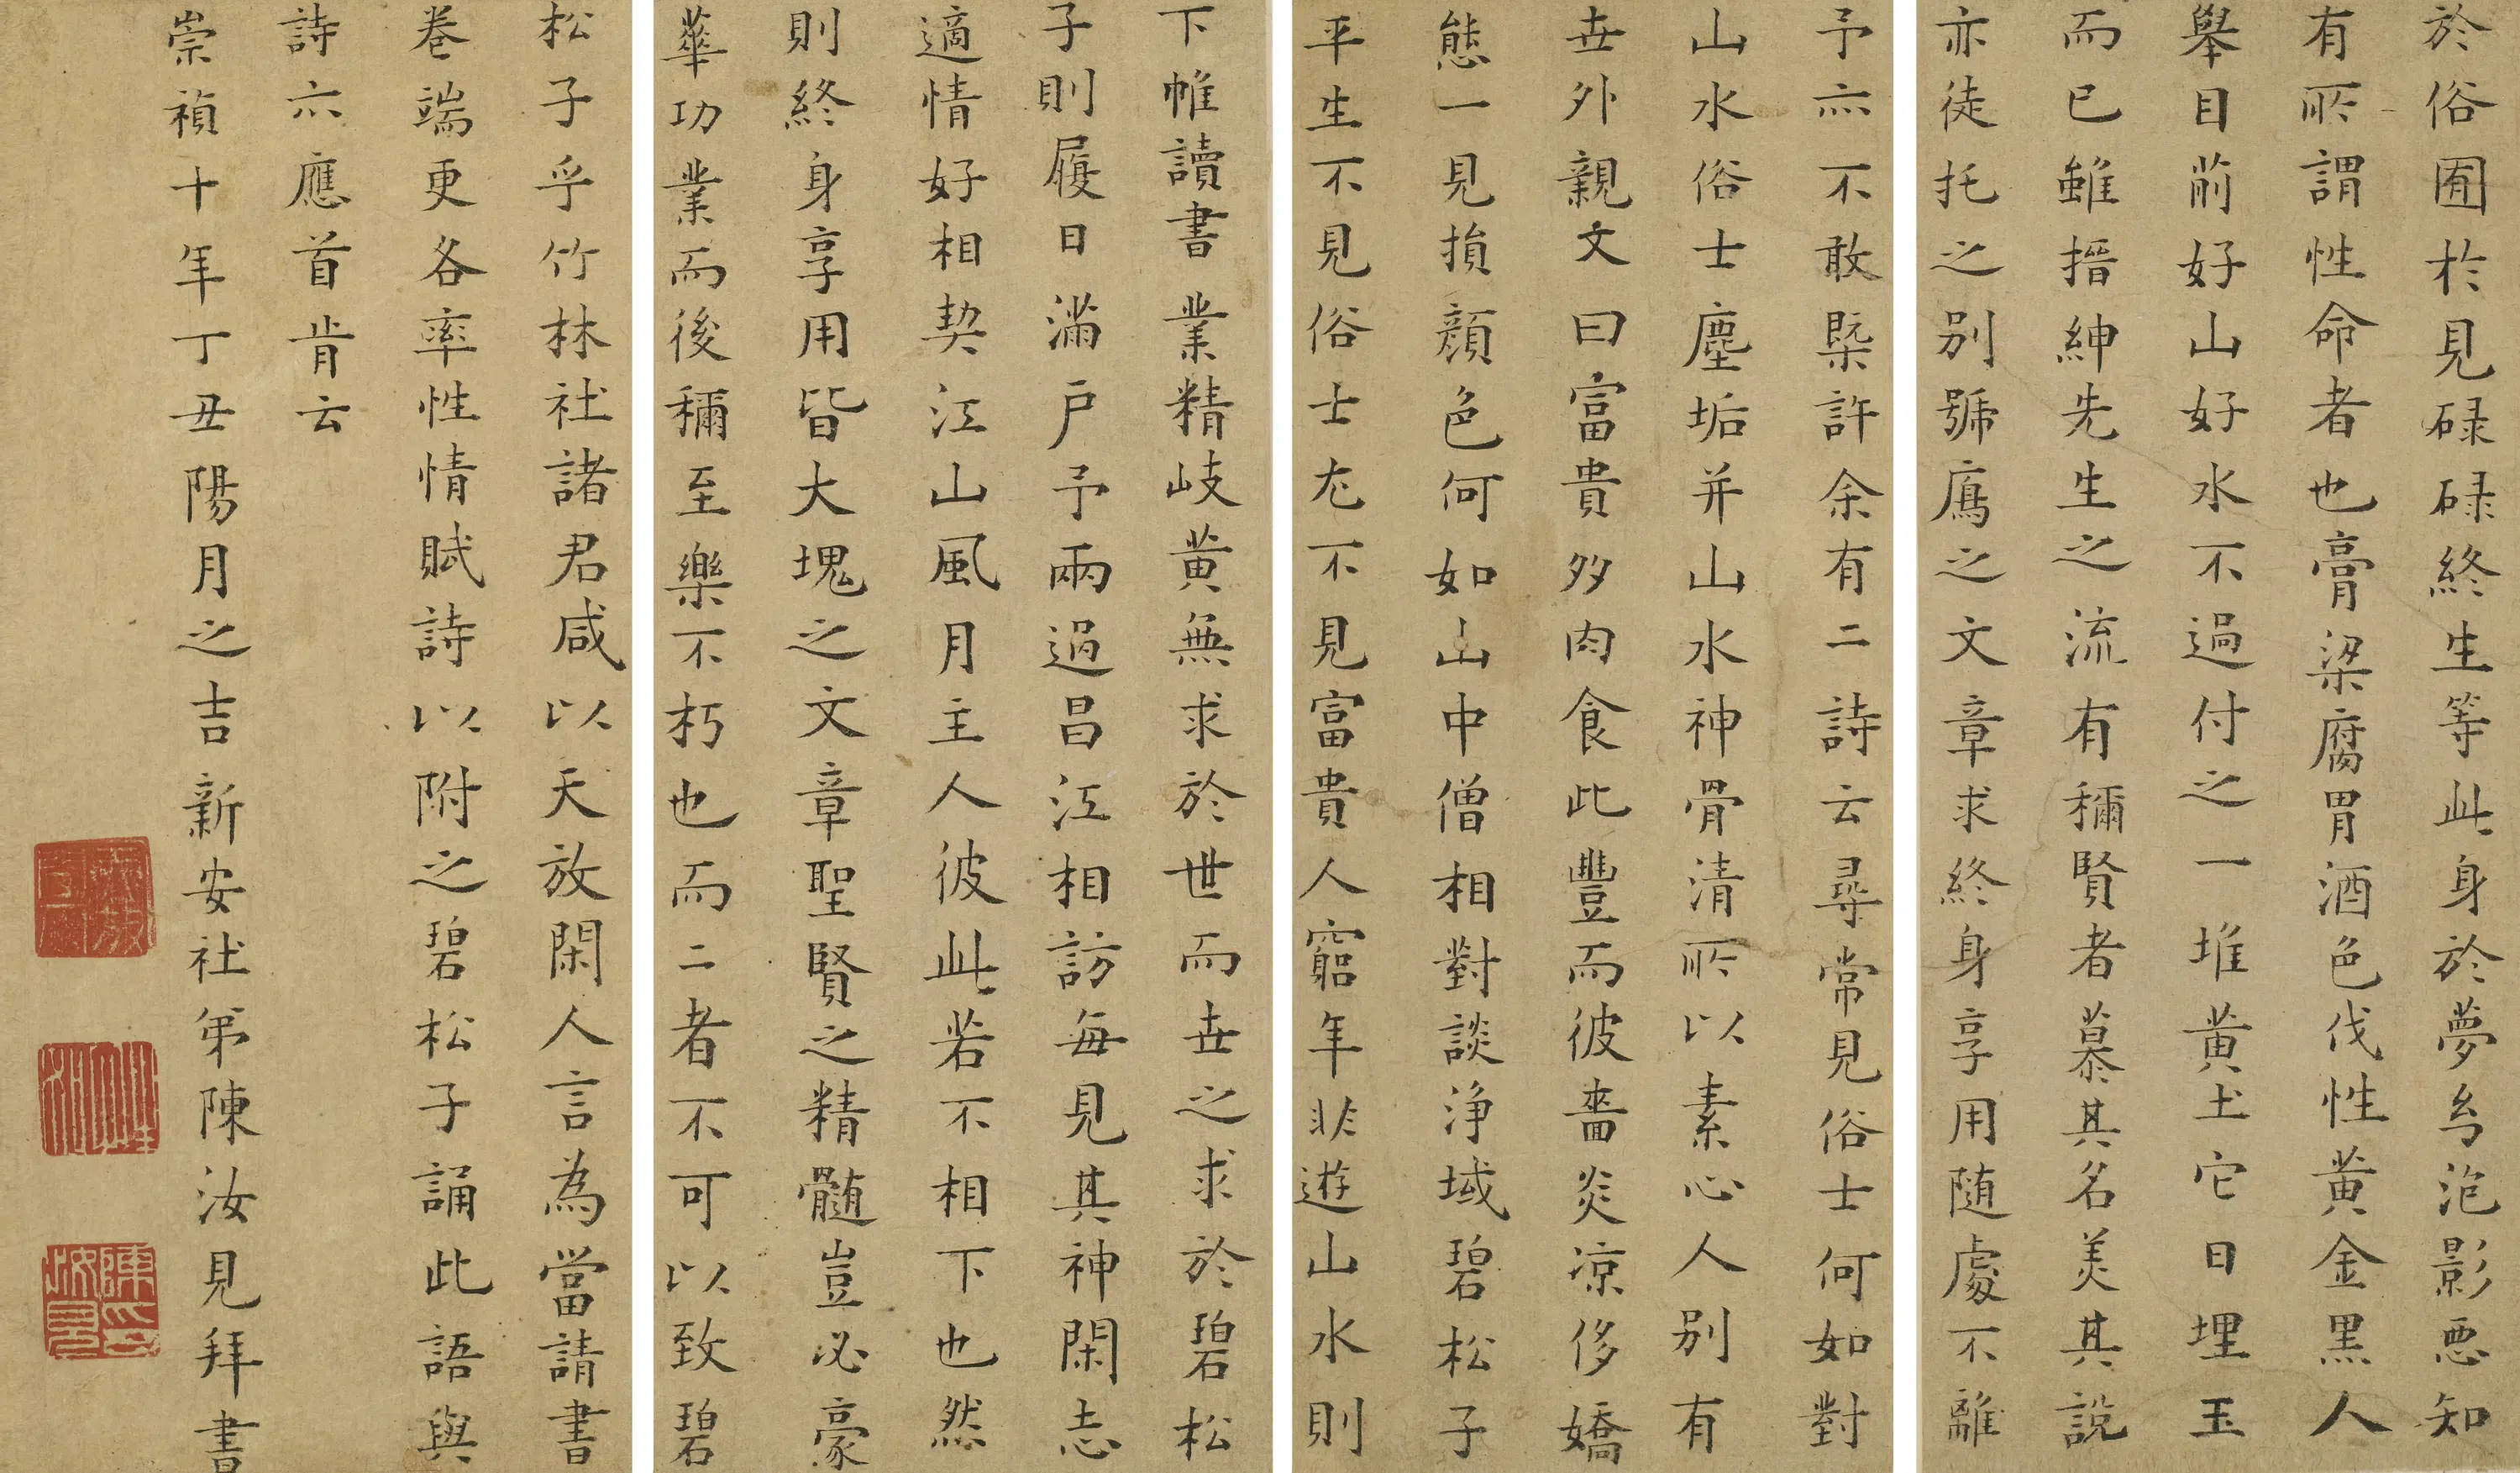 於俗囿於見碌碌終生等此身於夢幻泡影惡知
有所謂性命者也膏粱腐胃酒色伐性黃金黑人
舉目前好山好水不過付之一堆黃土它日埋玉
而已雖搢紳先生之流有稱賢者慕其名美其說
亦徒托之別號鴈之文章求終身享用随處不離
予亦不敢槩許余有二詩云尋常見俗士何如對
山水俗士塵垢并山水神骨清所以素心人別有
世外親文曰富貴多肉食此豐而彼嗇炎凉侈嬌
態一見損顏色何如山中僧相對談淨域碧松子
平生不見俗士尤不見富貴人窮年非遊山水則
下帷讀書業精岐黃無求於世而世之求於碧松
子則屨日滿戶予兩過昌江相訪每見其神閑志
適情好相契江山風月主人彼此若不相下也然
則終身享用皆大塊之文章聖賢之精髓豈必豪
華功業而後稱至樂不朽也而二者不可以致碧
松子乎竹林社諸君咸以天放閑人言為當請書
卷端更各率性情賦詩以附之碧松子誦此語與
詩亦應首肯云
崇禎十年丁丑陽月之吉新安社弟陳汝見拜書